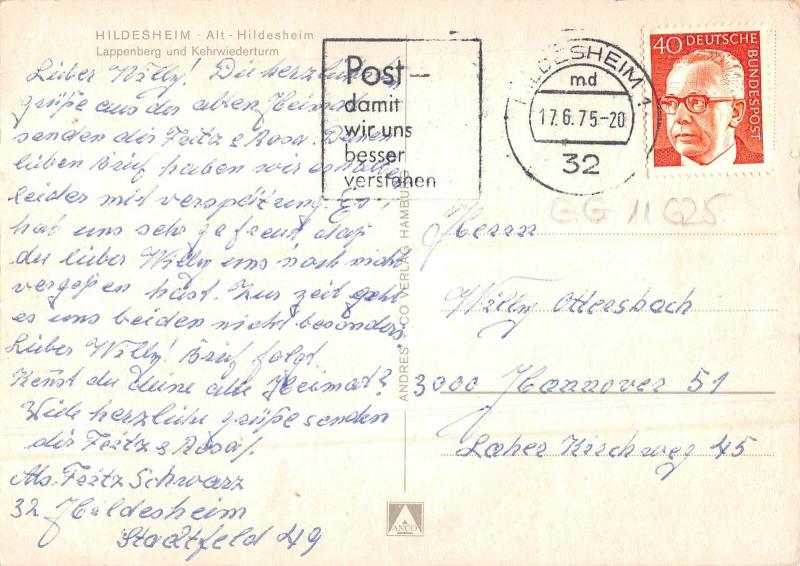 HILDESHEIM · Alt-Hildesheim
Lappenberg und Kehrwiederturm
Lieber Willy! Die herzlichen
grüße aus der alten Heimat
senden dir Fritz & Rosa. Deinen
lieben Brief haben wir erhalten
leider mit verspätzung. Es
hat uns sehr gefreut daß
du lieber Willy uns noch nicht
vergeßen hast. Zur zeit geht
es uns beiden nicht besonders
Lieber Willy! Brief folgt.
Kenst du deine alte Heimat?
Viele herzliche grüße senden
dir Fritz & Rosa!
Abs. Fritz Schwarz
32 Hildesheim
Stadtfeld 49
Post-
damit
wir uns
besser
verstehen
HILDESHEIM 1
md
17.6.75-20
32
40 DEUTSCHE
BUNDESPOST
GG 11625
Herrn
Willy Ottersbach
3000 Hannover 51
Laher Kirchweg 45
ANDRES + CO VERLAG HAMBURG
ANCO